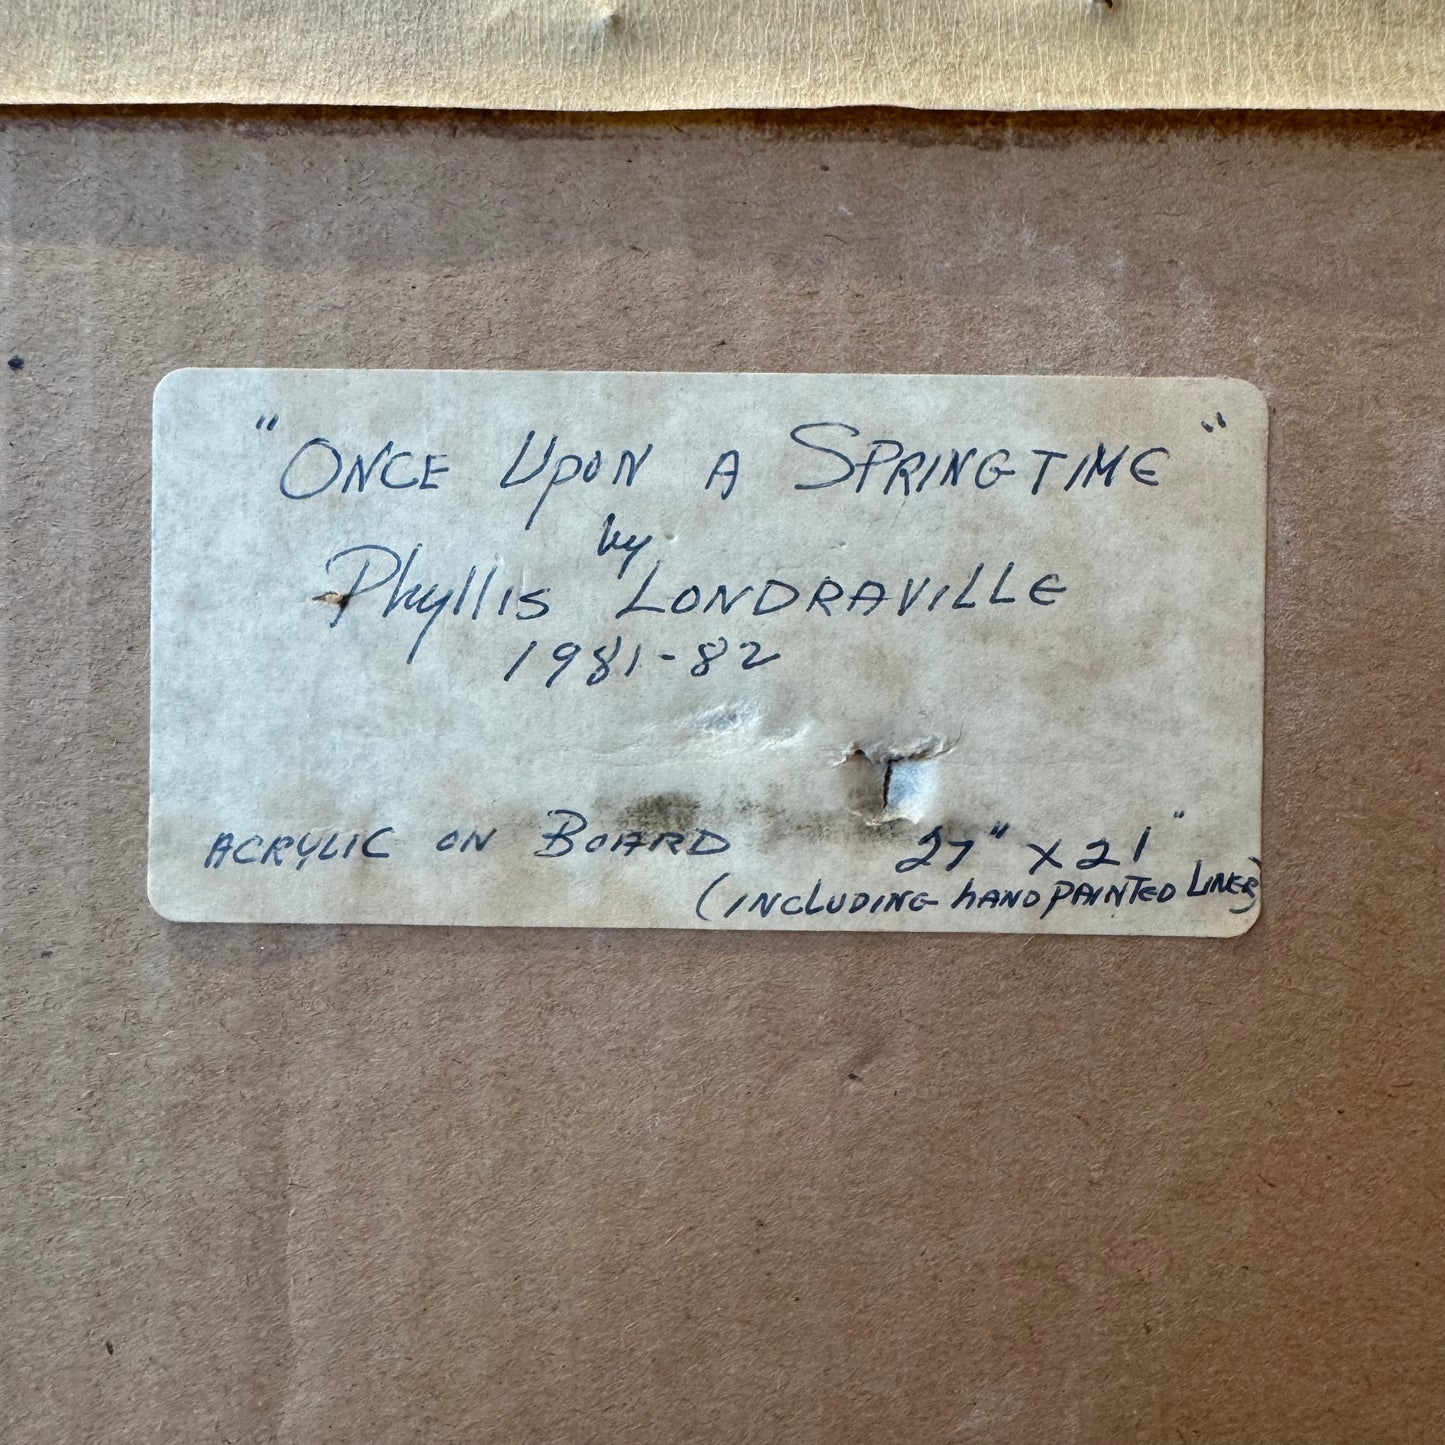 "ONCE UPON A SPRINGTIME"
by
Phyllis LONDRAVILLE
1981-82
ACRYLIC ON BOARD 27" X 21"
(INCLUDING HAND PAINTED LINER)